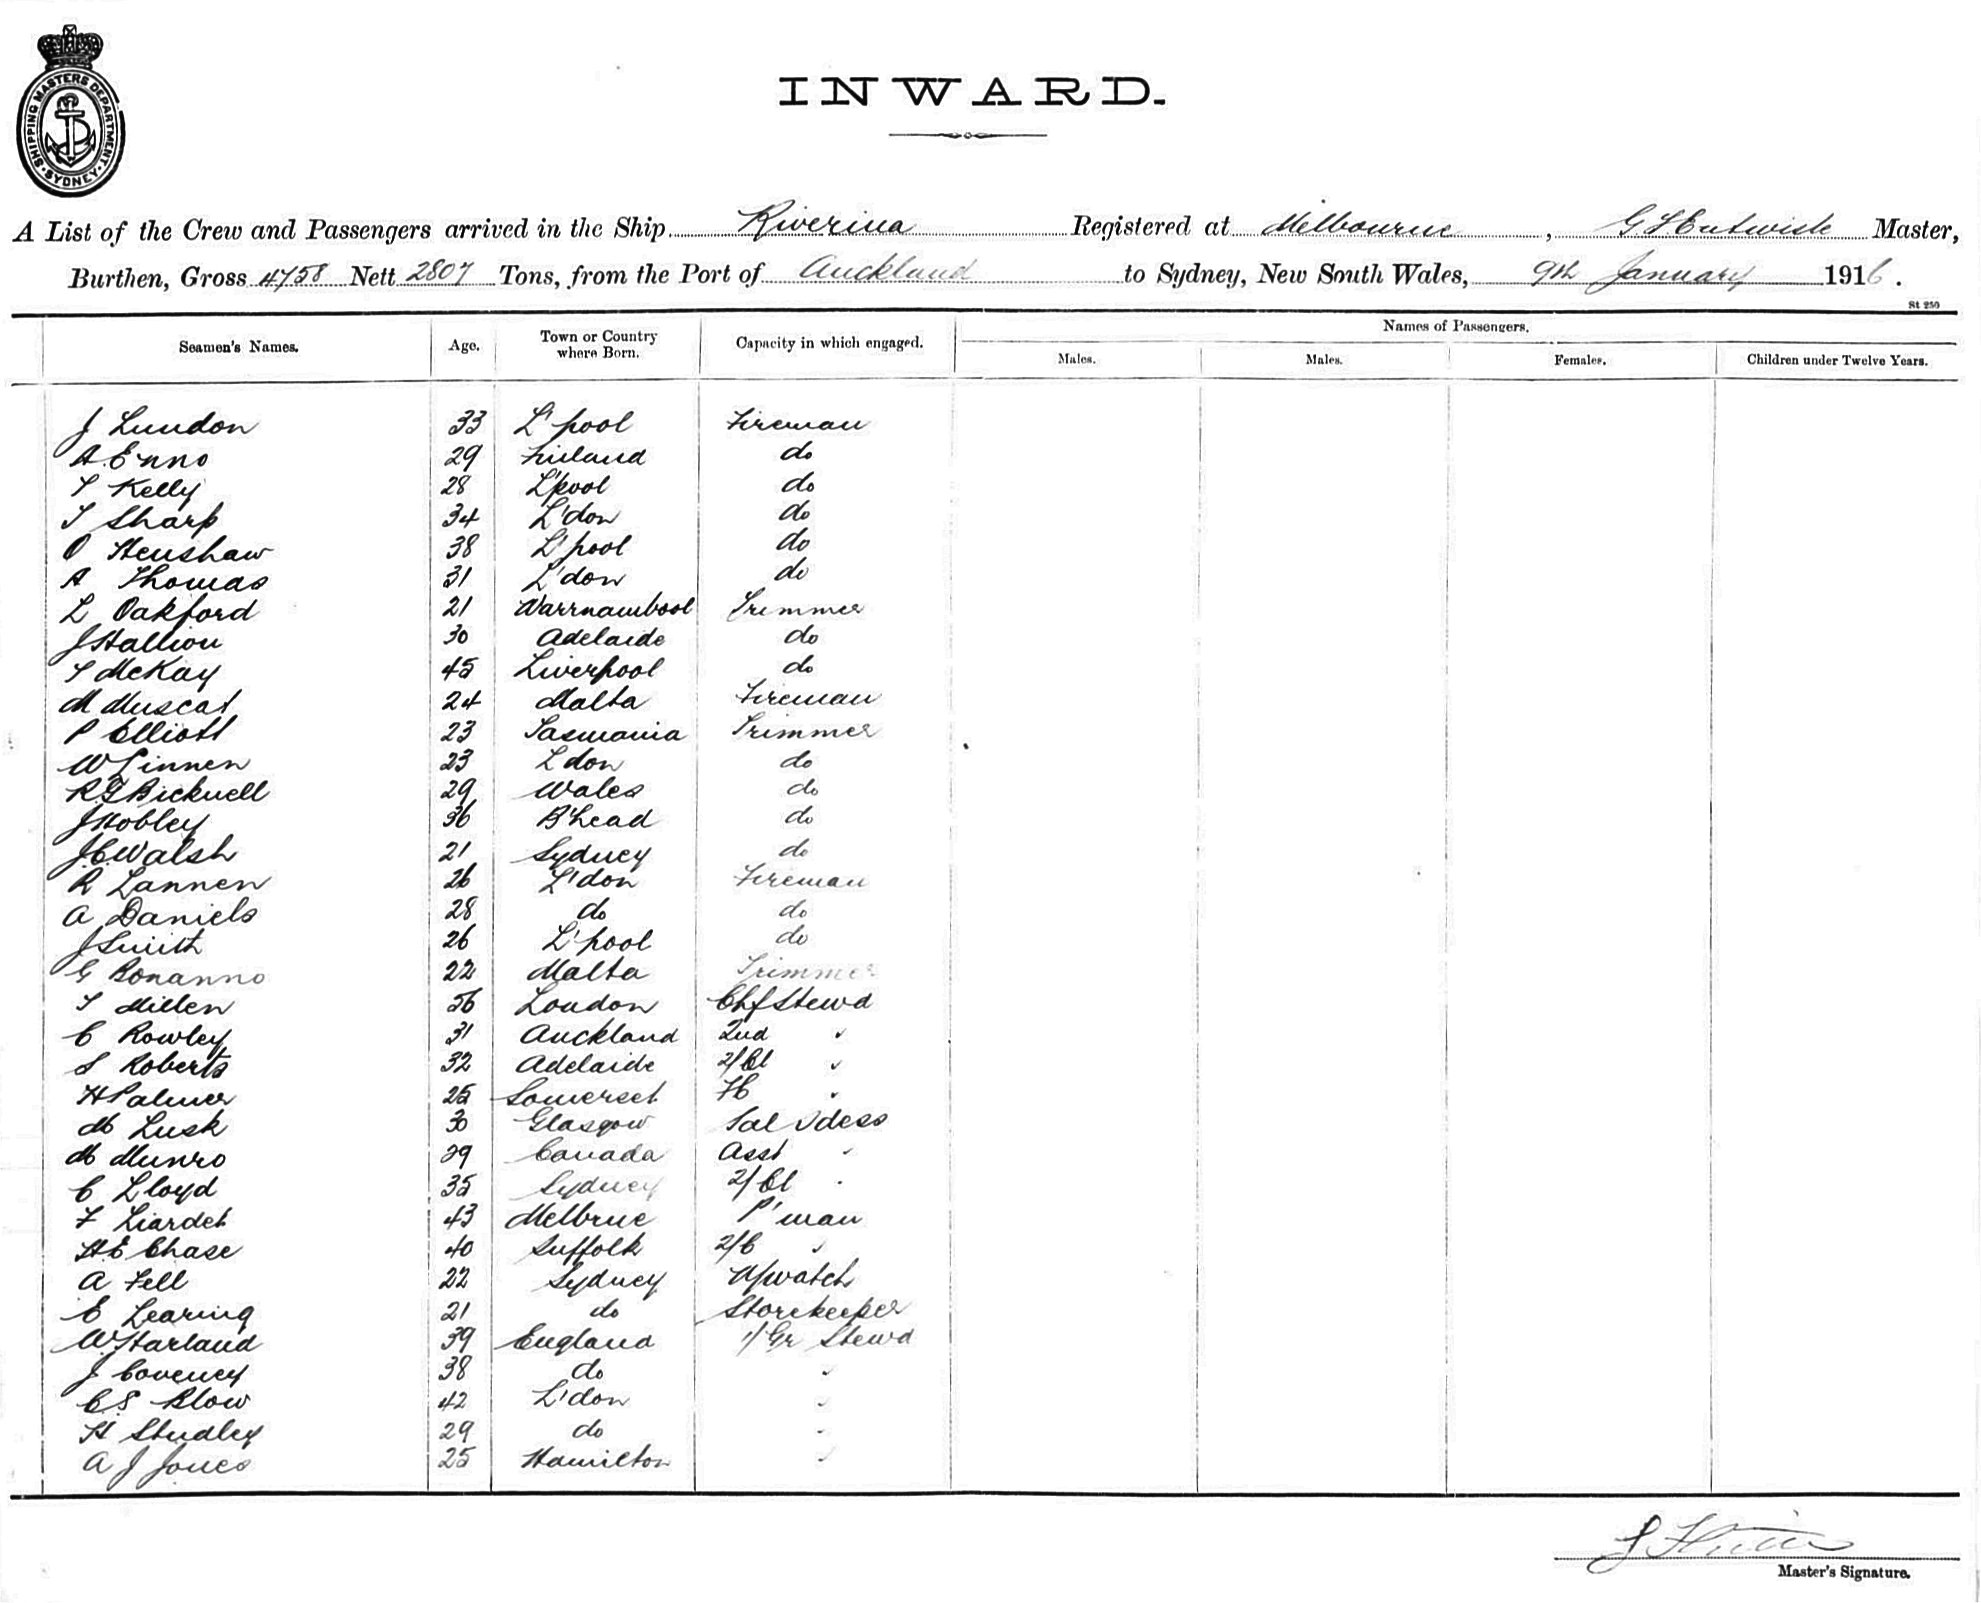 SHIPPING MASTERS DEPARTMENT
SYDNEY
INWARD.
A List of the Crew and Passengers arrived in the Ship Riverina Registered at Melbourne, Master,
Burthen, Gross 4758 Nett 2807 Tons, from the Port of Auckland to Sydney, New South Wales, 9th January 1916.
St 250
Seamen's Names. Age. Town or Country where Born. Capacity in which engaged. Names of Passengers.
Males. Males. Females. Children under Twelve Years.
J Lundon 33 L'pool Fireman
A. Enno 29 Finland do
T Kelly 28 L'pool do
T Sharp 34 L'don do
O Henshaw 38 L'pool do
A Thomas 31 L'don do
L Oakford 21 Warrnambool Trimmer
J Hallion 30 Adelaide do
T McKay 45 Liverpool do
M Muscat 24 Malta Fireman
P Elliott 23 Tasmania Trimmer
W Linnen 23 L don do
R G Bicknell 29 Wales do
J Hobley 36 B'head do
J.C. Walsh 21 Sydney do
R Lannen 26 L'don Fireman
A Daniels 28 do do
J Smith 26 L'pool do
G Bonanno 22 Malta Trimmer
T Millen 56 London Chf Stewd
C Rowley 31 Auckland 2nd "
S Roberts 32 Adelaide 2/Cl "
H Palmer 25 Somerset FC "
M Lusk 30 Glasgow Sal Sdess
M Munro 29 Canada Asst "
C Lloyd 35 Sydney 2/Cl "
F Liardet 43 Melbrne P'man
H E Chase 40 Suffolk 2/C "
A Fell 22 Sydney N/watch
E Learing 21 do Storekeeper
W Harland 39 England 1/Gr Stewd
J Coveney 38 do "
C S Blow 42 L'don "
H Studley 29 do "
A J Jones 25 Hamilton "
Master's Signature.